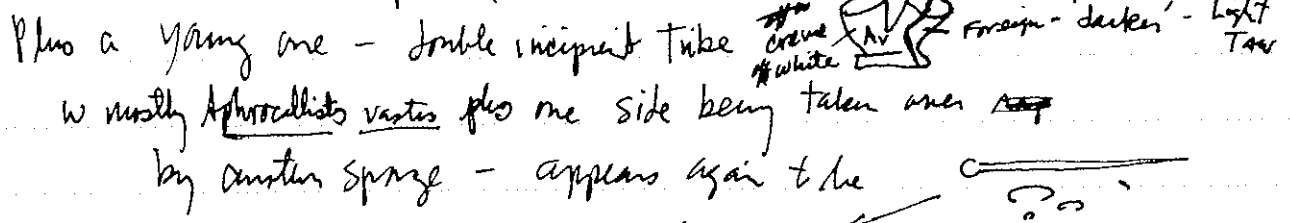 Plus a young one - double incipient tube creme white Av foreign - 'darker' - Light Tan
w mostly Aphrocallists vastus plus one side being taken over
by another sponge - appears again to be